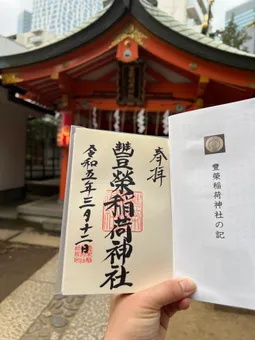 奉拝
豐榮稲荷神社
令和五年三月十二日
豐榮稲荷神社の記